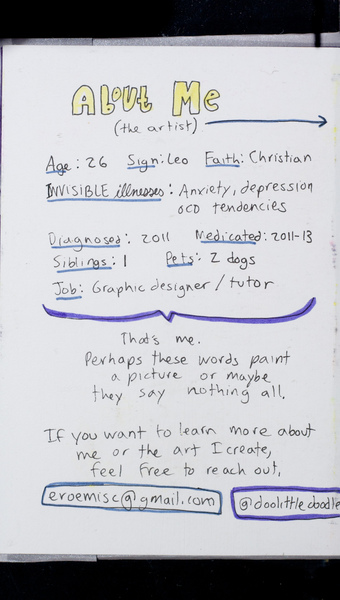 About Me
(the artist)
Age: 26 Sign: Leo Faith: Christian
INVISIBLE illnesses: Anxiety, depression
OCD tendencies
Diagnosed: 2011 Medicated: 2011-13
Siblings: 1 Pets: 2 dogs
Job: Graphic designer / tutor
That's me.
Perhaps these words paint
a picture or maybe
they say nothing all.
If you want to learn more about
me or the art I create,
feel free to reach out,
eroemisc@gmail.com @doolittledoodle